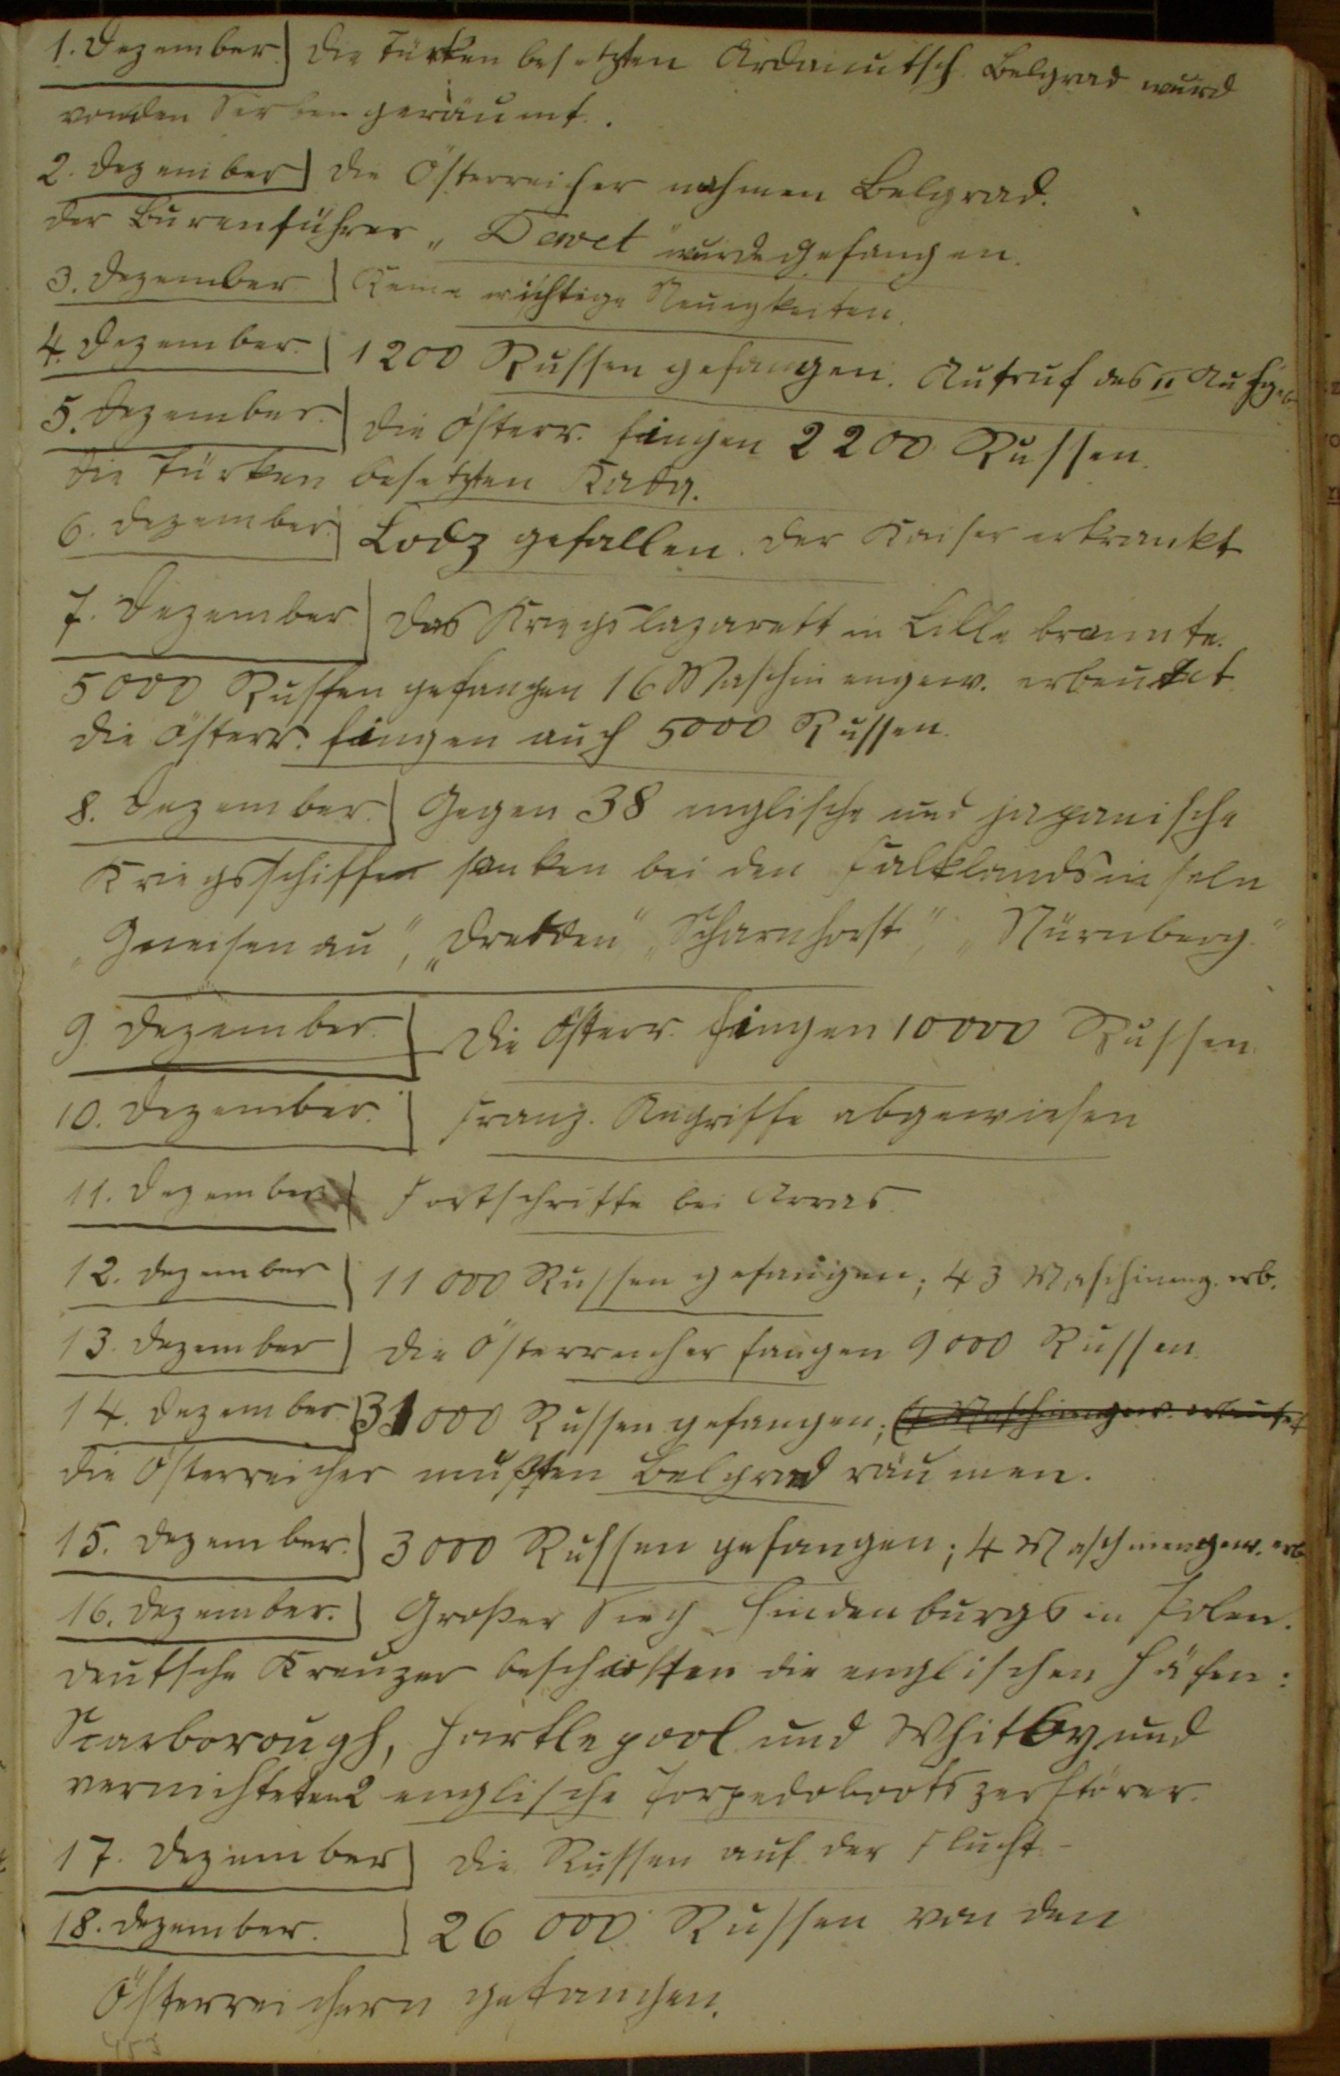 1. Dezember. Die Türken besetzten Ardanutsch. Belgrad wurd
von den Serben geräumt.
2. Dezember Die Österreicher nahmen Belgrad.
Der Burenführer „Dewet" wurde gefangen.
3. Dezember Keine wichtige Neuigkeiten.
4. Dezember. 1200 Russen gefangen. Aufruf des II Aufgeb
5. Dezember. Die Österr. fingen 2200 Russen.
Die Türken besetzten Kada.
6. Dezember. Lodz gefallen. Der Kaiser erkrankt
7. Dezember. Das Kriegslazarett in Lille brannte.
5000 Russen gefangen 16 Maschinengew. erbeutet
Die Österr. fingen auch 5000 Russen.
8. Dezember. Gegen 38 englische und japanische
Kriegsschiffen sanken bei den Falklandsinseln
„Gneisenau", „Dresden" „Scharnhorst", „Nürnberg."
9. Dezember. Die Österr. fingen 10000 Russen.
10. Dezember. Franz. Angriffe abgewiesen
11. Dezember. Fortschritte bei Arras.
12. Dezember 11000 Russen gefangen; 43 Maschineng. erb.
13. Dezember Die Österreicher fangen 9000 Russen.
14. Dezember. 31000 Russen gefangen; (4 Maschinengew. erbeutet
Die Österreicher mußten Belgrad räumen.
15. Dezember. 3000 Russen gefangen; 4 Maschinengew. erb.
16. Dezember. Großer Sieg Hindenburgs in Polen.
Deutsche Kreuzer beschossen die englischen Häfen:
Scarborough, Hartlepool und Whitby und
vernichteten 2 englische Torpedobootszerstörer.
17. Dezember Die Russen auf der Flucht.
18. Dezember. 26000 Russen von den
Österreichern gefangen.